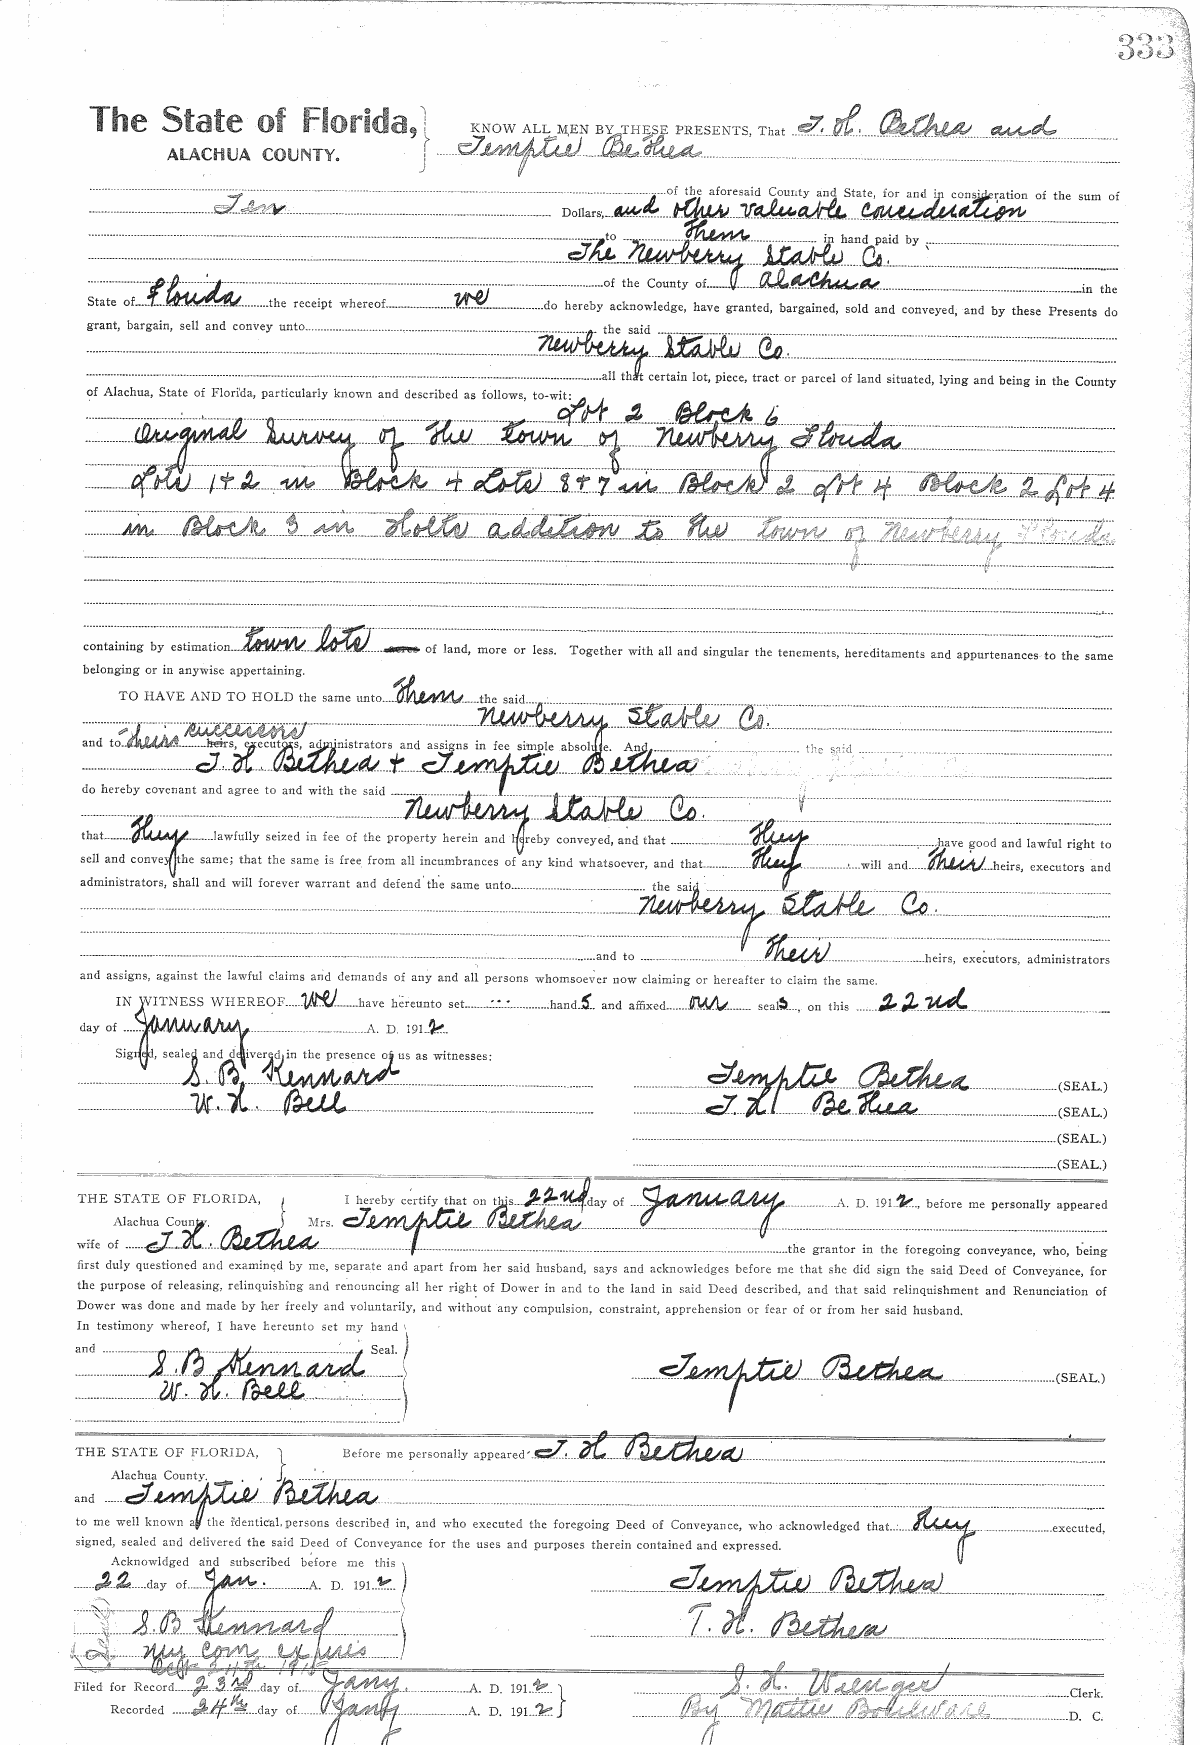 333
The State of Florida,
ALACHUA COUNTY.
KNOW ALL MEN BY THESE PRESENTS, That T. H. Bethea and
Temptie Bethea
of the aforesaid County and State, for and in consideration of the sum of
Ten Dollars, and other valuable concideration
to them in hand paid by
The Newberry Stable Co.
of the County of Alachua in the
State of Florida the receipt whereof we do hereby acknowledge, have granted, bargained, sold and conveyed, and by these Presents do
grant, bargain, sell and convey unto the said
Newberry Stable Co.
all that certain lot, piece, tract or parcel of land situated, lying and being in the County
of Alachua, State of Florida, particularly known and described as follows, to-wit:
Lot 2 Block 6
Original Survey of the town of Newberry Florida
Lots 1+2 in Block 4 Lots 8+7 in Block 2 Lot 4 Block 2 Lot 4
in Block 3 in Holts addition to the town of Newberry Florida
containing by estimation town lots acres of land, more or less. Together with all and singular the tenements, hereditaments and appurtenances to the same
belonging or in anywise appertaining.
TO HAVE AND TO HOLD the same unto them the said
Newberry Stable Co.
successors
and to theirs heirs, executors, administrators and assigns in fee simple absolute. And the said
T. H. Bethea + Temptie Bethea
do hereby covenant and agree to and with the said
Newberry Stable Co.
that they lawfully seized in fee of the property herein and hereby conveyed, and that they have good and lawful right to
sell and convey the same; that the same is free from all incumbrances of any kind whatsoever, and that they will and their heirs, executors and
administrators, shall and will forever warrant and defend the same unto the said
Newberry Stable Co.
and to their heirs, executors, administrators
and assigns, against the lawful claims and demands of any and all persons whomsoever now claiming or hereafter to claim the same.
IN WITNESS WHEREOF we have hereunto set hands and affixed our seals, on this 22nd
day of January A. D. 1912
Signed, sealed and delivered in the presence of us as witnesses:
S. B. Kennard Temptie Bethea (SEAL.)
W. H. Bell T. H. Bethea (SEAL.)
(SEAL.)
(SEAL.)
THE STATE OF FLORIDA, I hereby certify that on this 22nd day of January A. D. 1912, before me personally appeared
Alachua County. Mrs. Temptie Bethea
wife of T. H. Bethea the grantor in the foregoing conveyance, who, being
first duly questioned and examined by me, separate and apart from her said husband, says and acknowledges before me that she did sign the said Deed of Conveyance, for
the purpose of releasing, relinquishing and renouncing all her right of Dower in and to the land in said Deed described, and that said relinquishment and Renunciation of
Dower was done and made by her freely and voluntarily, and without any compulsion, constraint, apprehension or fear of or from her said husband.
In testimony whereof, I have hereunto set my hand
and Seal.
S. B Kennard Temptie Bethea (SEAL.)
W. H. Bell
THE STATE OF FLORIDA, Before me personally appeared T. H Bethea
Alachua County.
and Temptie Bethea
to me well known as the identical persons described in, and who executed the foregoing Deed of Conveyance, who acknowledged that they executed,
signed, sealed and delivered the said Deed of Conveyance for the uses and purposes therein contained and expressed.
Acknowldged and subscribed before me this
22 day of Jan. A. D. 1912 Temptie Bethea
S. B Kennard T. H. Bethea
(Seal)
my com expires
Filed for Record 23rd day of Jany. A. D. 1912 S. H. Wienges Clerk.
Recorded 24th day of Jany A. D. 1912 By Mattie Bouleware D. C.